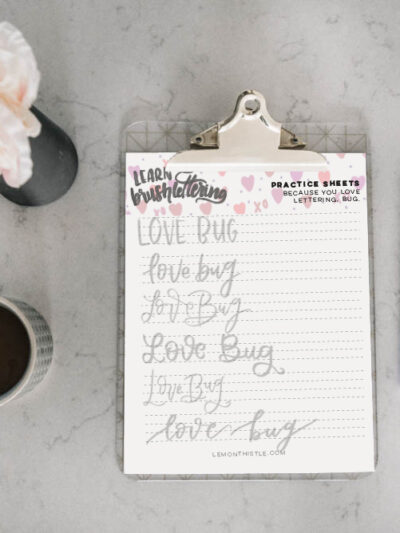 LEARN
brushlettering
PRACTICE SHEETS
BECAUSE YOU LOVE
LETTERING, BUG.
XO
LOVE BUG
love bug
Love Bug
Love Bug
Love Bug
love bug
LEMONTHISTLE.COM